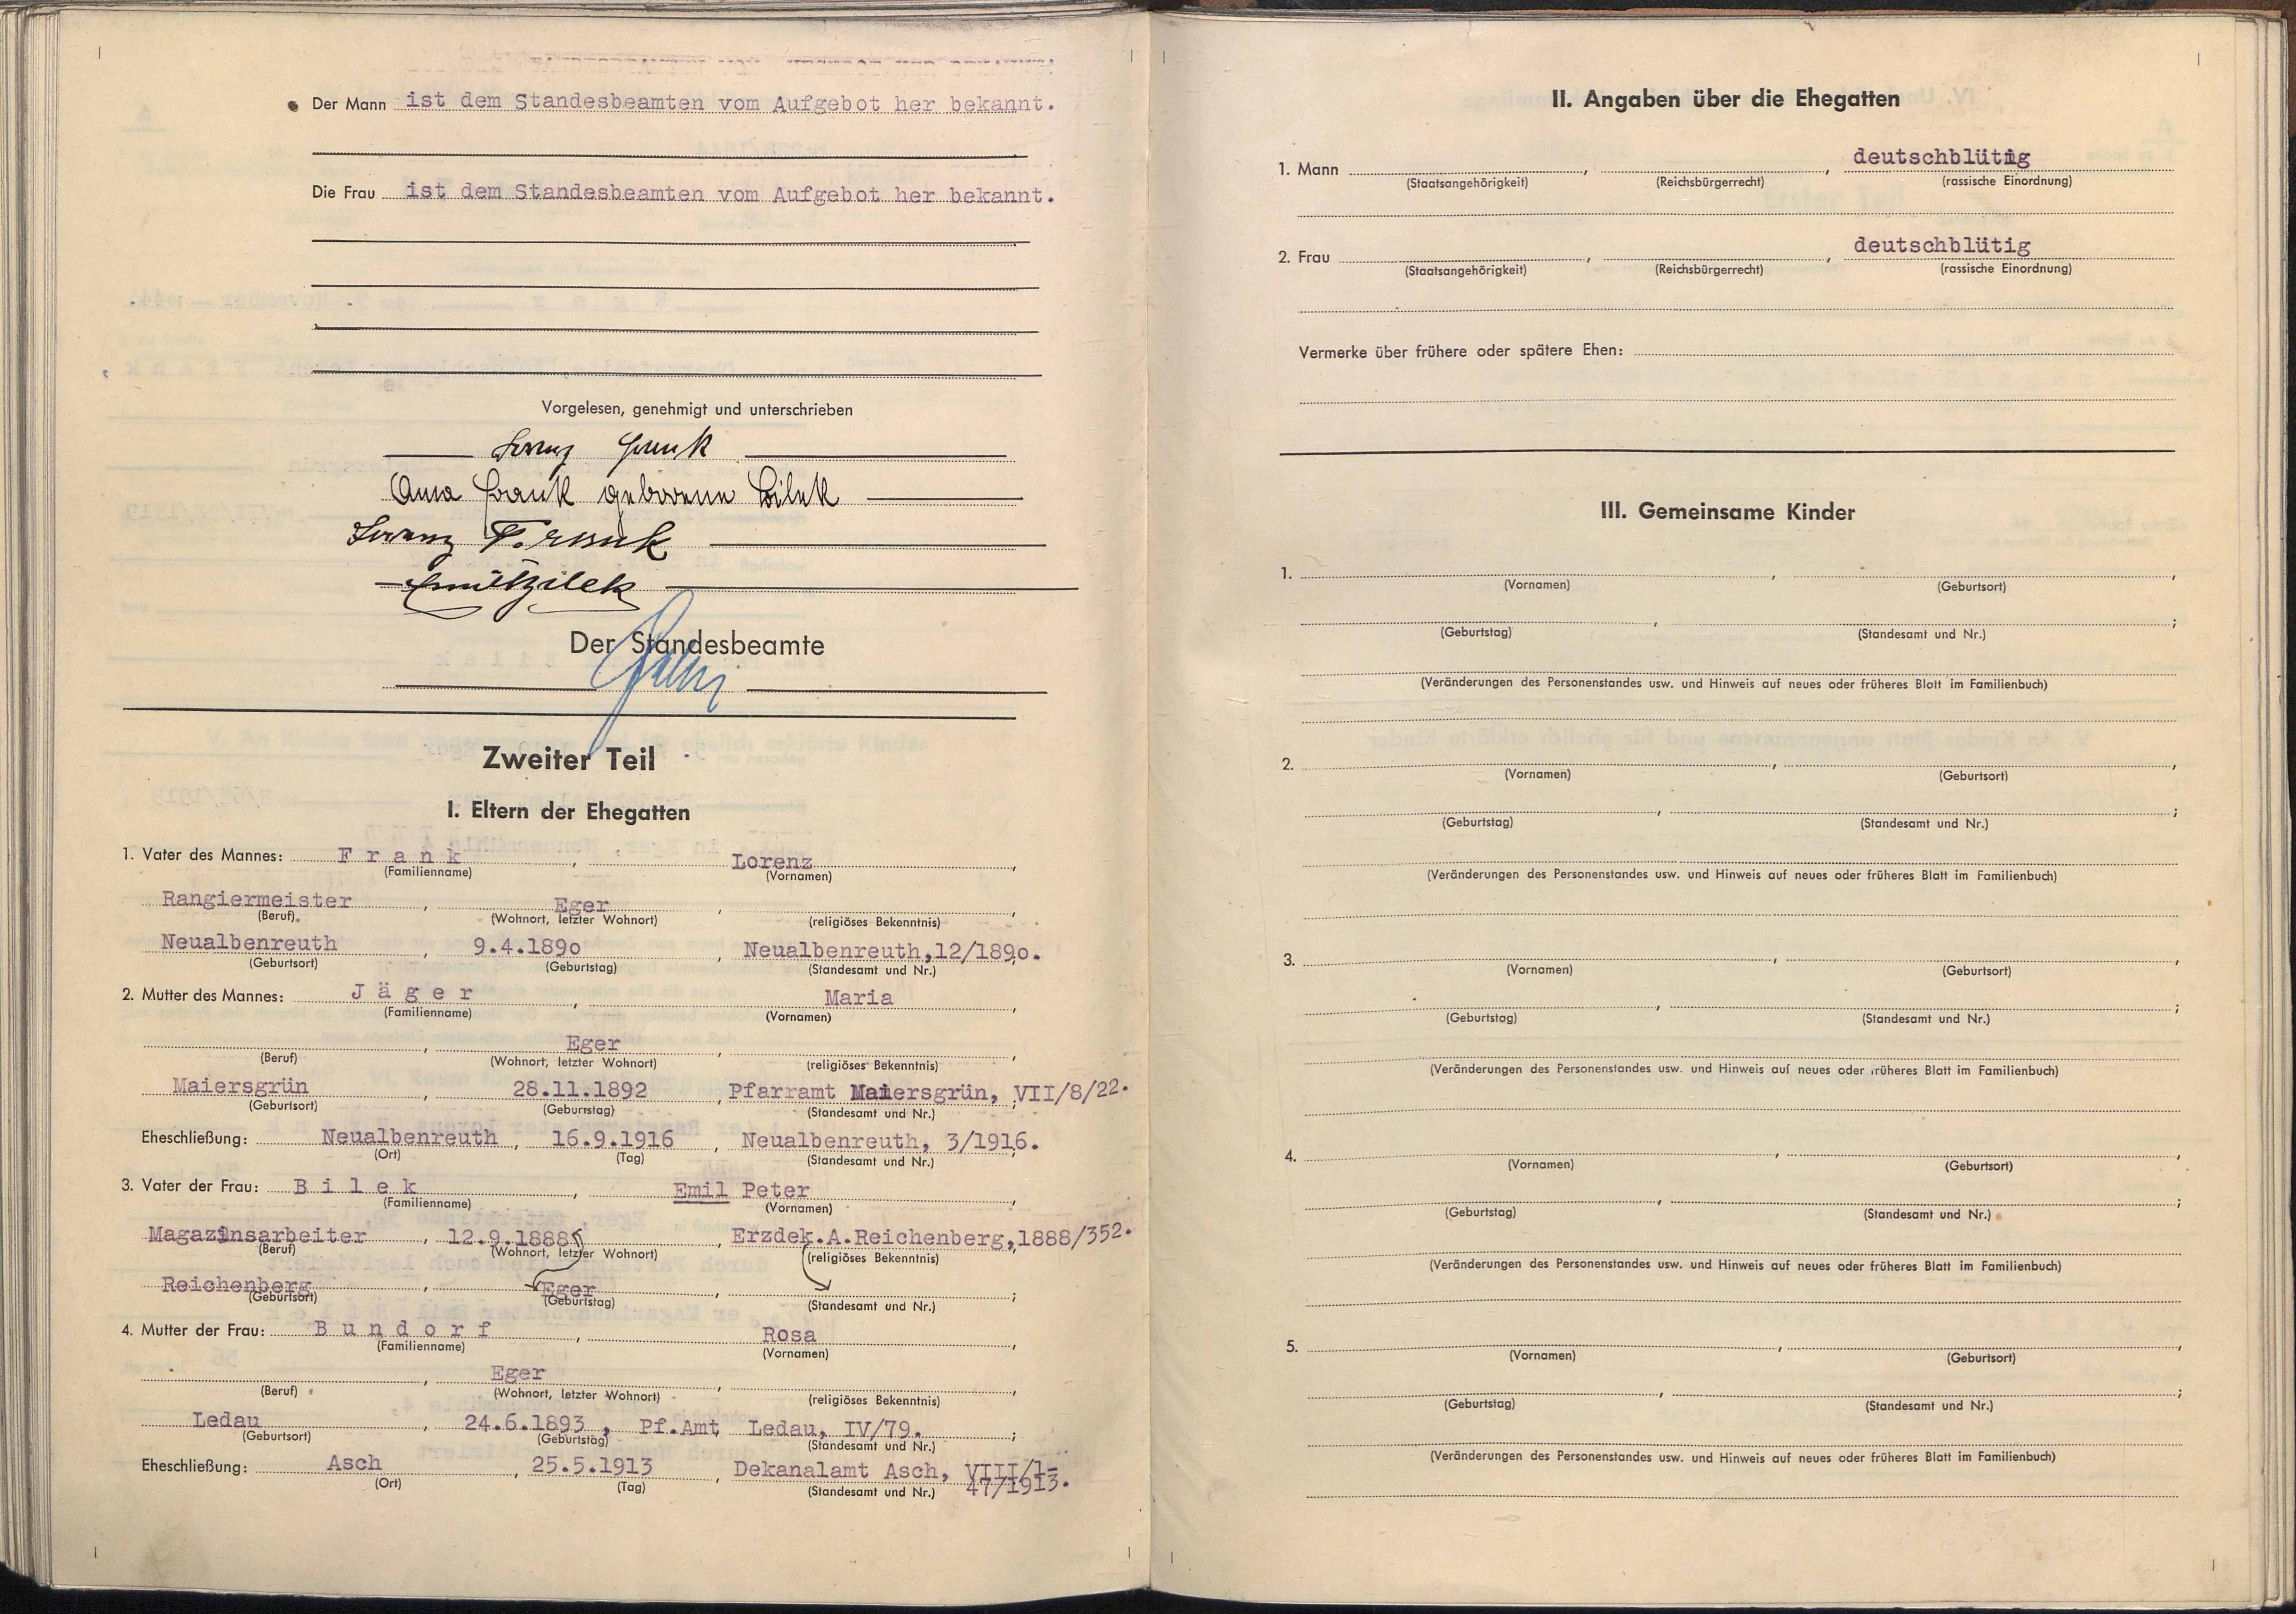 Der Mann ist dem Standesbeamten vom Aufgebot her bekannt.
Die Frau ist dem Standesbeamten vom Aufgebot her bekannt.
Vorgelesen, genehmigt und unterschrieben
Lorenz Frank
Anna Frank geborene Bilek
Lorenz Frank
Emil Bilek
Der Standesbeamte
Zweiter Teil
I. Eltern der Ehegatten
1. Vater des Mannes: Frank, Lorenz,
(Familienname) (Vornamen)
Rangiermeister, Eger,
(Beruf) (Wohnort, letzter Wohnort) (religiöses Bekenntnis)
Neualbenreuth, 9.4.1890, Neualbenreuth,12/1890.
(Geburtsort) (Geburtstag) (Standesamt und Nr.)
2. Mutter des Mannes: Jäger, Maria,
(Familienname) (Vornamen)
Eger
(Beruf) (Wohnort, letzter Wohnort) (religiöses Bekenntnis)
Maiersgrün, 28.11.1892, Pfarramt Maiersgrün, VII/8/22.
(Geburtsort) (Geburtstag) (Standesamt und Nr.)
Eheschließung: Neualbenreuth, 16.9.1916, Neualbenreuth, 3/1916.
(Ort) (Tag) (Standesamt und Nr.)
3. Vater der Frau: Bilek, Emil Peter,
(Familienname) (Vornamen)
Magazinsarbeiter, 12.9.1888, Erzdek.A.Reichenberg,1888/352.
(Beruf) (Wohnort, letzter Wohnort) (religiöses Bekenntnis)
Reichenberg, Eger, ;
(Geburtsort) (Geburtstag) (Standesamt und Nr.)
4. Mutter der Frau: Bundorf, Rosa,
(Familienname) (Vornamen)
Eger
(Beruf) (Wohnort, letzter Wohnort) (religiöses Bekenntnis)
Ledau, 24.6.1893, Pf.Amt Ledau, IV/79.;
(Geburtsort) (Geburtstag) (Standesamt und Nr.)
Eheschließung: Asch, 25.5.1913, Dekanalamt Asch, VIII/1-
(Ort) (Tag) (Standesamt und Nr.) 47/1913.
II. Angaben über die Ehegatten
1. Mann , , deutschblütig
(Staatsangehörigkeit) (Reichsbürgerrecht) (rassische Einordnung)
2. Frau , , deutschblütig
(Staatsangehörigkeit) (Reichsbürgerrecht) (rassische Einordnung)
Vermerke über frühere oder spätere Ehen:
III. Gemeinsame Kinder
1. , ,
(Vornamen) (Geburtsort)
(Geburtstag) (Standesamt und Nr.)
(Veränderungen des Personenstandes usw. und Hinweis auf neues oder früheres Blatt im Familienbuch)
2. , ,
(Vornamen) (Geburtsort)
(Geburtstag) (Standesamt und Nr.)
(Veränderungen des Personenstandes usw. und Hinweis auf neues oder früheres Blatt im Familienbuch)
3. , ,
(Vornamen) (Geburtsort)
(Geburtstag) (Standesamt und Nr.)
(Veränderungen des Personenstandes usw. und Hinweis auf neues oder früheres Blatt im Familienbuch)
4. , ,
(Vornamen) (Geburtsort)
(Geburtstag) (Standesamt und Nr.)
(Veränderungen des Personenstandes usw. und Hinweis auf neues oder früheres Blatt im Familienbuch)
5. , ,
(Vornamen) (Geburtsort)
(Geburtstag) (Standesamt und Nr.)
(Veränderungen des Personenstandes usw. und Hinweis auf neues oder früheres Blatt im Familienbuch)